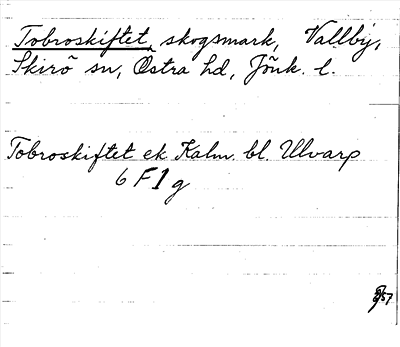 Tobroskiftet, skogsmark, Vallby,
Skirö sn, Östra hd, Jönk. l.
Tobroskiftet ek Kalm. bl. Ulvarp
6 F 1 g